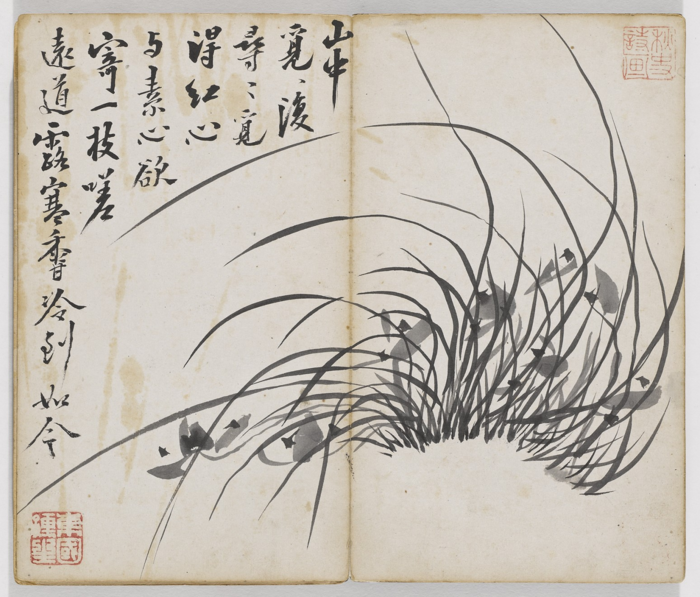 秋史
詩画
山中
覓〻復
尋〻覓
得紅心
与素心欲
寄一枝嗟
遠道露寒香冷到如今
東國